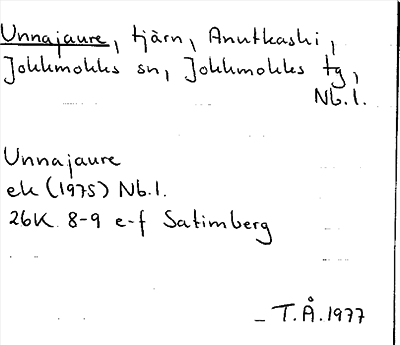 Unnajaure, tjärn, Anutkaski,
Jokkmokks sn, Jokkmokks tg,
Nb.l.
Unnajaure
ek (1975) Nb.l.
26K. 8-9 e-f Satimberg
– T.Å.1977